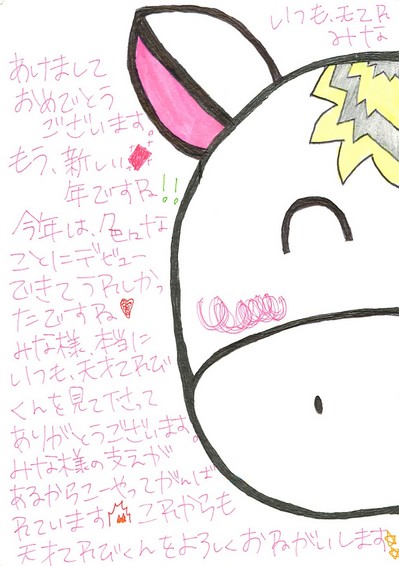 いつも、天てれ
みな
あけまして
おめでとう
ございます。
もう、新しい
年ですね!!
今年は、色んな
ことにデビュー
できてうれしかっ
たですね
みな様、本当に
いつも、天才てれび
くんを見て下さって
ありがとうございます。
みな様の支えが
あるからこーやってがんば
れています これからも
天才てれびくんをよろしくおねがいします